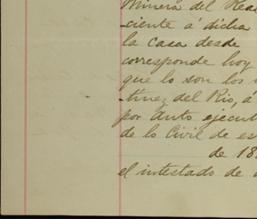 Primera del Rea
-ciente á dicha
la casa desde
corresponde hoy
que lo son los
-tinez del Rio, á
por Auto ejecut
de lo Civil de es
de 18
el intestado de